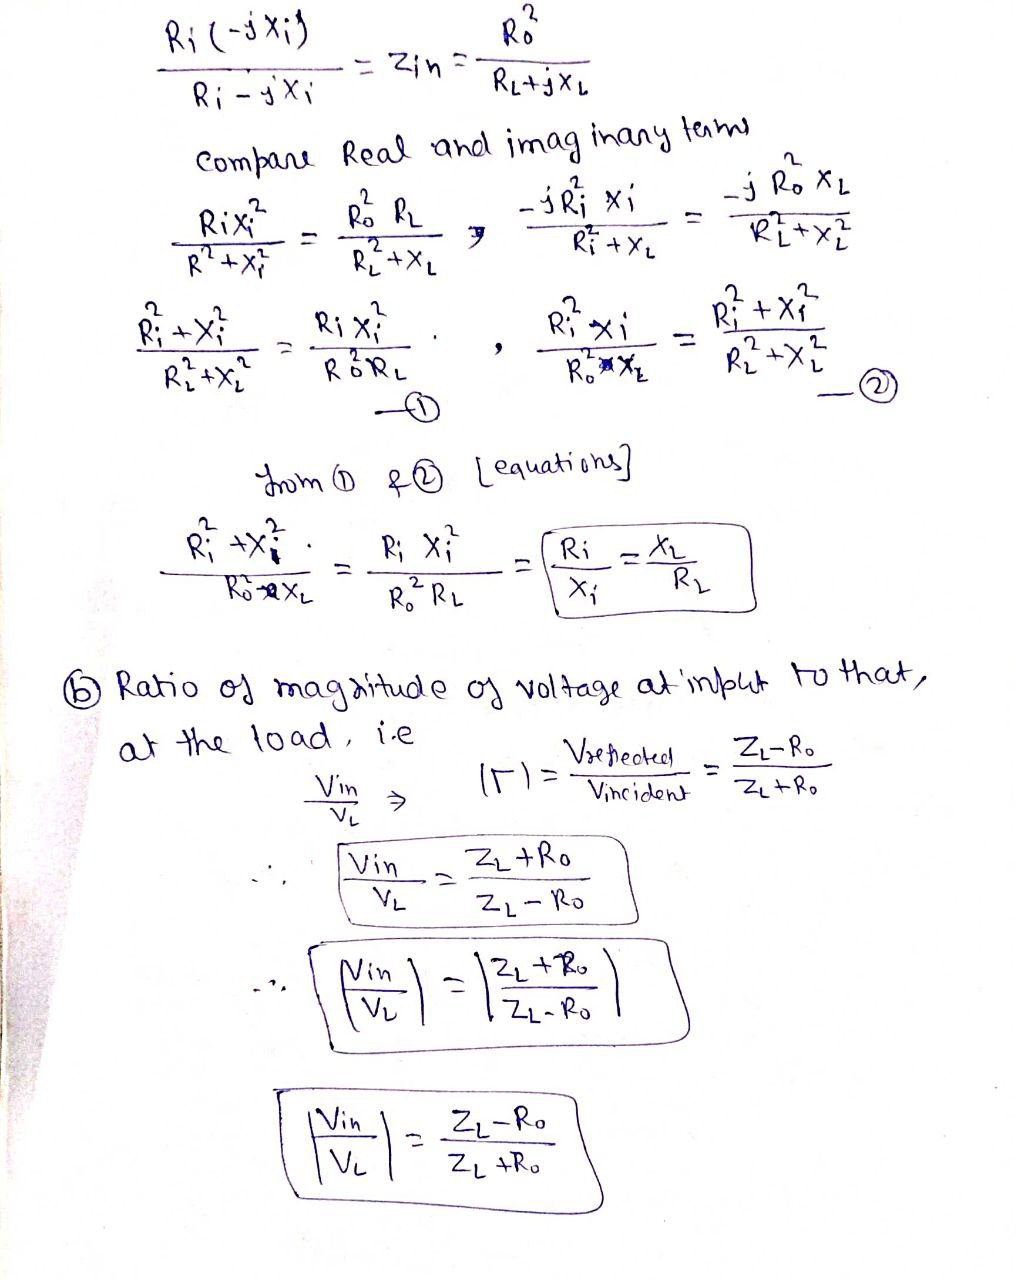 Ri(-jXi) / Ri - jXi = Zin = Ro² / RL+jXL
compare Real and imaginary terms
RiXi² / R²+Xi² = Ro² RL / RL²+XL , -jRi² Xi / Ri²+XL = -j Ro² XL / RL²+XL²
Ri²+Xi² / RL²+XL² = Ri Xi² / Ro²RL . , Ri² Xi / Ro² XL = Ri²+Xi² / RL²+XL²
—① —②
from ① & ② [equations]
Ri²+Xi² / Ro² XL = Ri Xi² / Ro² RL = Ri / Xi = XL / RL
ⓑ Ratio of magnitude of voltage at input to that,
at the load, i.e
Vin / VL ⇒ |Γ| = Vreflected / Vincident = ZL-Ro / ZL+Ro
∴ Vin / VL = ZL+Ro / ZL-Ro
∴ |Vin / VL| = |ZL+Ro / ZL-Ro|
|Vin / VL| = ZL-Ro / ZL+Ro